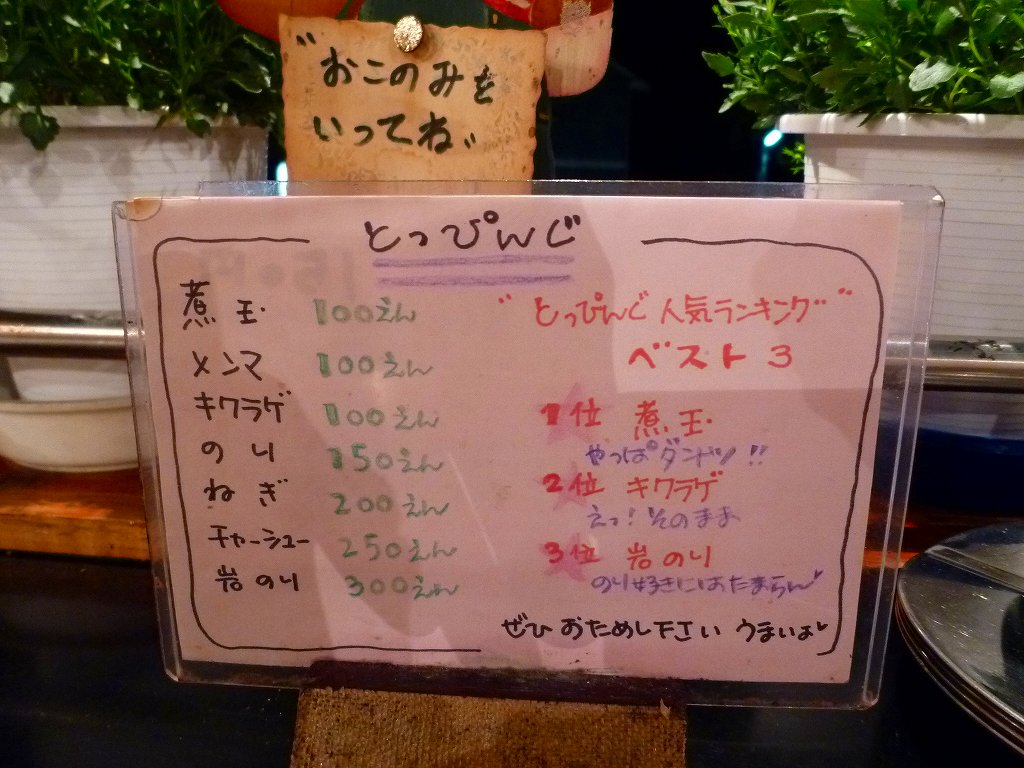 〝おこのみを
いってね〟
とっぴんぐ
煮玉 100えん
メンマ 100えん
キクラゲ 100えん
のり 150えん
ねぎ 200えん
チャーシュー 250えん
岩のり 300えん
〝とっぴんぐ人気ランキング〞
ベスト3
1位 煮玉
やっぱダントツ!!
2位 キクラゲ
えっ!そのまま
3位 岩のり
のり好きにはたまらん♥
ぜひおためし下さい うまいよ♥